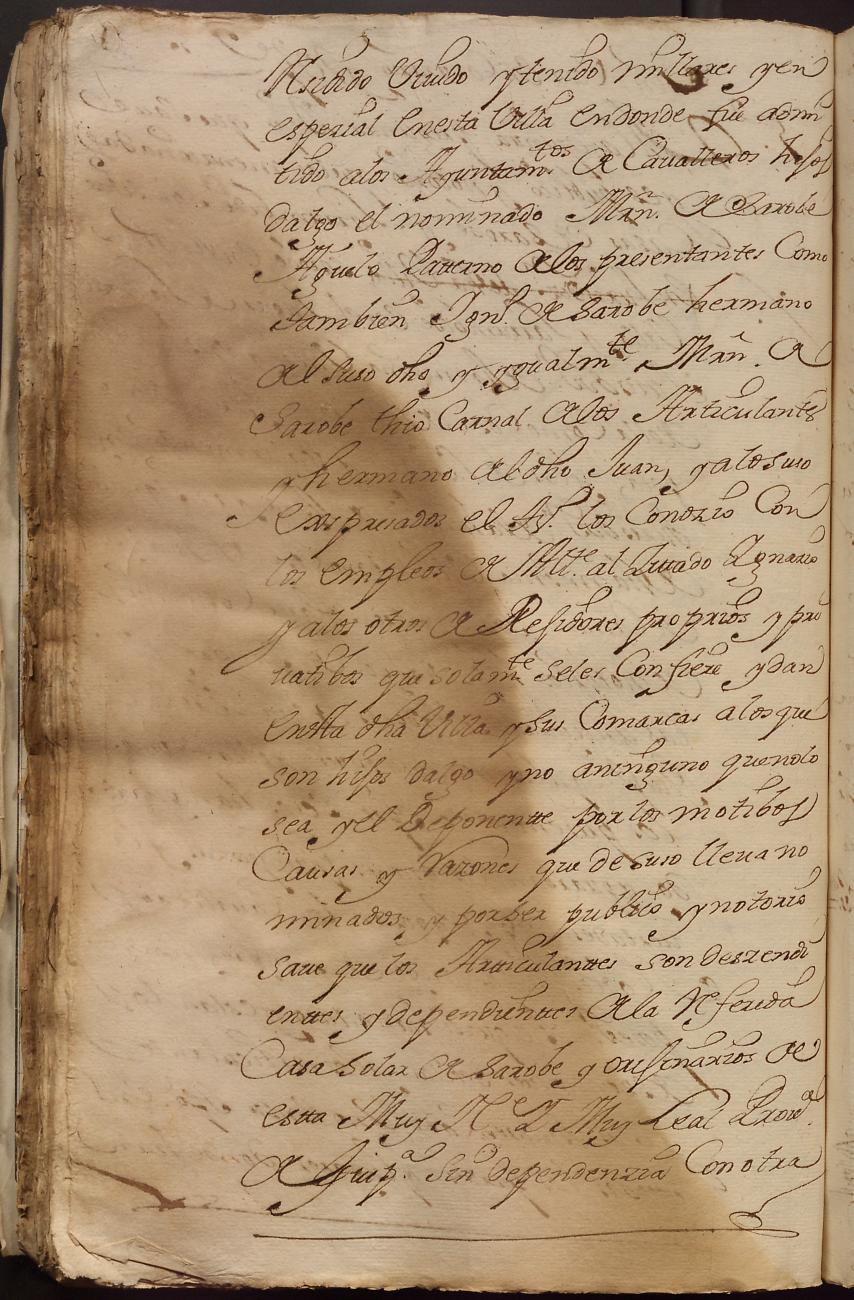 Residido Viuido y tenido millares y en
espezial En esta Villa en donde fue admi
tido a los Ayuntam.tos de Caualleros hijos
dalgo el nominado Mrn. de Sarobe
Aguelo Paterno de los presentantes Como
tambien Ygn.o de Sarobe hermano
del suso dho y ygualm.te Mrn. de
Sarobe thio Carnal de los Articulantes
y hermano del dho Juan, y a los suso
expresados el t.o los Conozio Con
los empleos de Alle. al Zitado Ygnazio
y a los otros de Rejidores proprios y pri
uatibos que solam.te se les Confiere y dan
En esta dha Villa y sus Comarcas a los que
son hijos dalgo y no a ninguno que no lo
sea y el Deponente por los motibos
Causas y Razones que de suso lleua no
minados y por ser publico y notorio
saue que los Articulantes son deszendi
entes y dependientes de la Referida
Casa Solar de Sarobe y orijinarios de
esta Muy N.e Y Muy Leal Prou.a
de Guip.a sin dependenzia Con otra